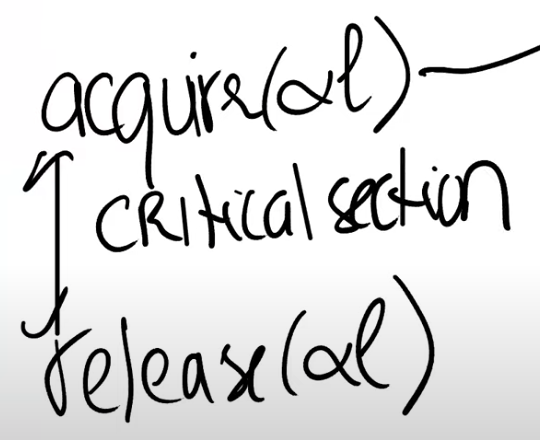 acquire(&l)
critical section
release(&l)